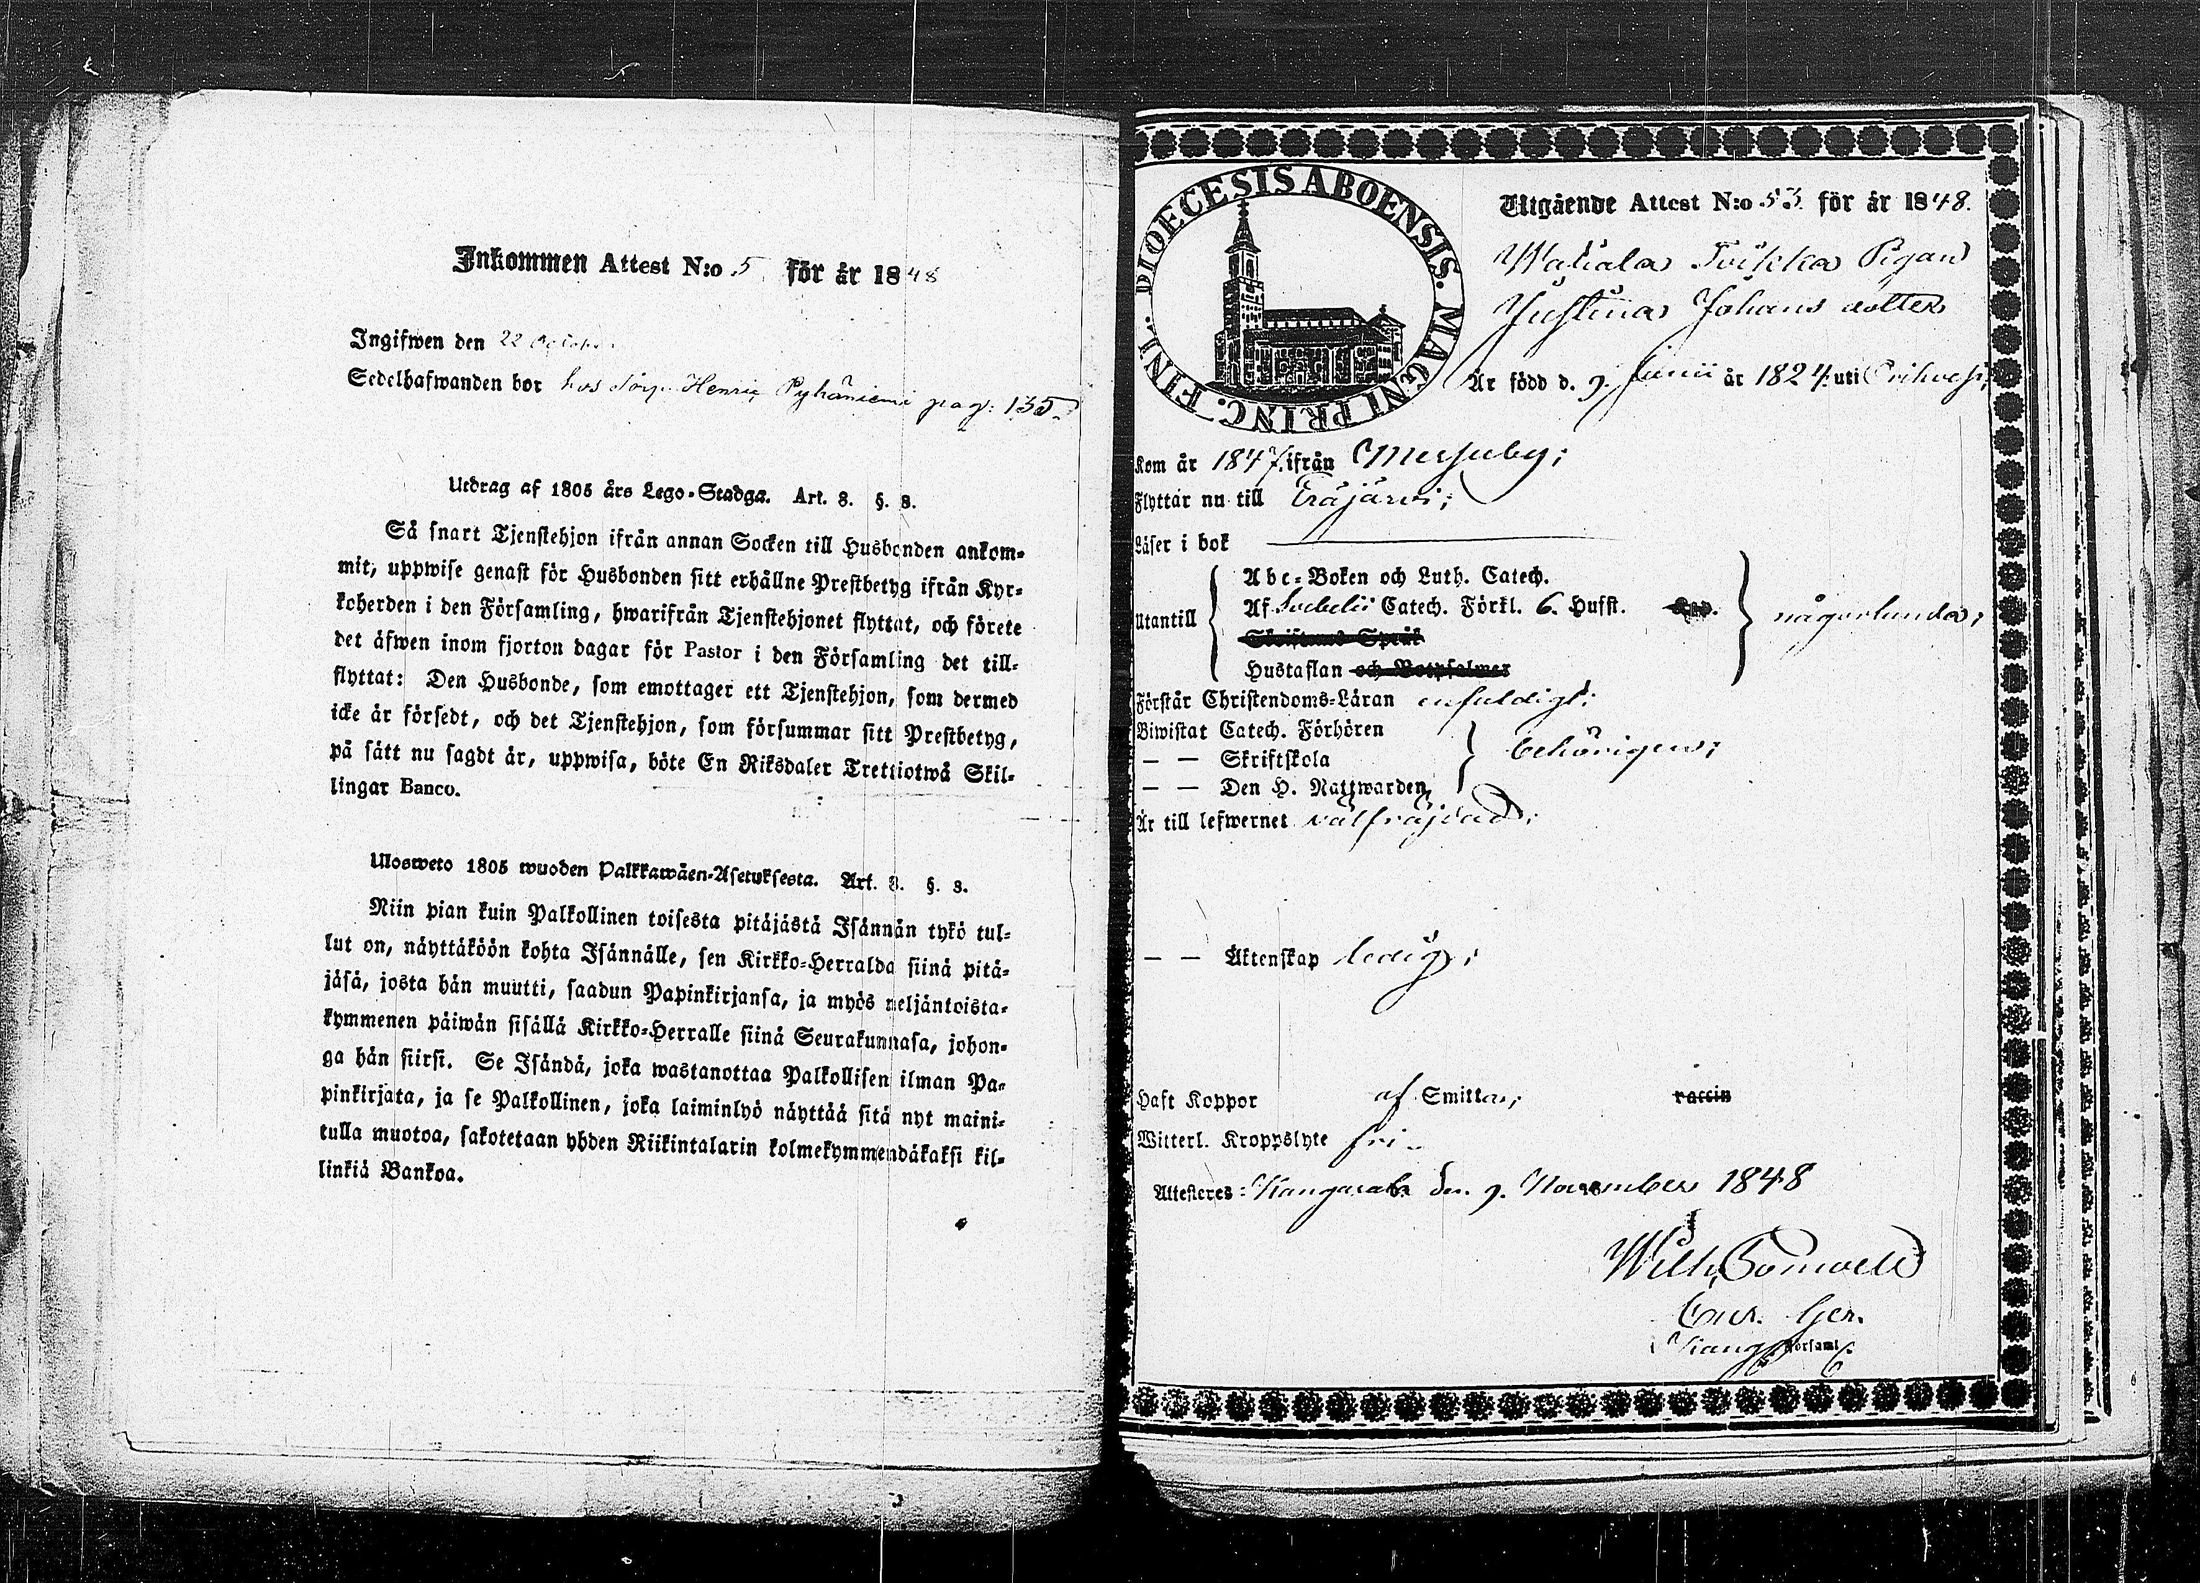 Inkommen Attest N:o 5 för år 1848
Ingifwen den 22 October
Sedelhafwanden bor hos Torp. Henric Pyhäniemi pag: 135.
Utdrag af 1805 års Lego-Stadga. Art. 8. §. 8.
Så snart Tjenstehjon ifrån annan Socken till Husbonden ankom-
mit, uppwise genast för Husbonden sitt erhållne Prestbetyg ifrån Kyr-
koherden i den Församling, hwarifrån Tjenstehjonet flyttat, och förete
det äfwen inom fjorton dagar för Pastor i den Församling det till-
flyttat: Den Husbonde, som emottager ett Tjenstehjon, som dermed
icke är försedt, och det Tjenstehjon, som försummar sitt Prestbetyg,
på sätt nu sagdt är, uppwisa, böte En Riksdaler Trettiotwå Skil-
lingar Banco.
Ulosweto 1805 wuoden Palkkawäen-Asetuksesta. Art. 8. §. 8.
Niin pian kuin Palkollinen toisesta pitäjästä Isännän tykö tul-
lut on, näyttäköön kohta Isännälle, sen Kirkko-Herralda siinä pitä-
jäsä, josta hän muutti, saadun Papinkirjansa, ja myös neljäntoista-
kymmenen päiwän sisällä Kirkko-Herralle siinä Seurakunnasa, johon-
ga hän siirsi. Se Isändä, joka wastanottaa Palkollisen ilman Pa-
pinkirjata, ja se Palkollinen, joka laiminlyö näyttää sitä nyt maini-
tulla muotoa, sakotetaan yhden Riikintalarin kolmekymmendäkaksi kil-
linkiä Bankoa.
DIOECESIS ABOENSIS. MAGNI PRINC. FINL.
Utgående Attest N:o 53 för år 1848.
Pigan
Justina Johans dotter
Är född d. 9. Junii år 1824. uti Orihvesi;
Kom år 1847. ifrån Messuby;
Flyttar nu till Eräjärvi;
Läser i bok
Abc-Boken och Luth. Catech.
Utantill Af Svebelii Catech. Förkl. 6. Hufst. Kap. någorlunda;
Skriftens Språk
Hustaflan och Botpsalmer
Förstår Christendoms-Läran enfaldigt;
Biwistat Catech. Förhören
— — Skriftskola behörigen;
— — Den H. Nattwarden
Är till lefwernet välfräjdad;
— — Äktenskap ledig;
Haft Koppor af Smittan; vaccin
Witterl. Kroppslyte fri.
Attesteres: Kangasala den 9. November 1848
Wilh.
Cur. Ger.
Kang. Församl.